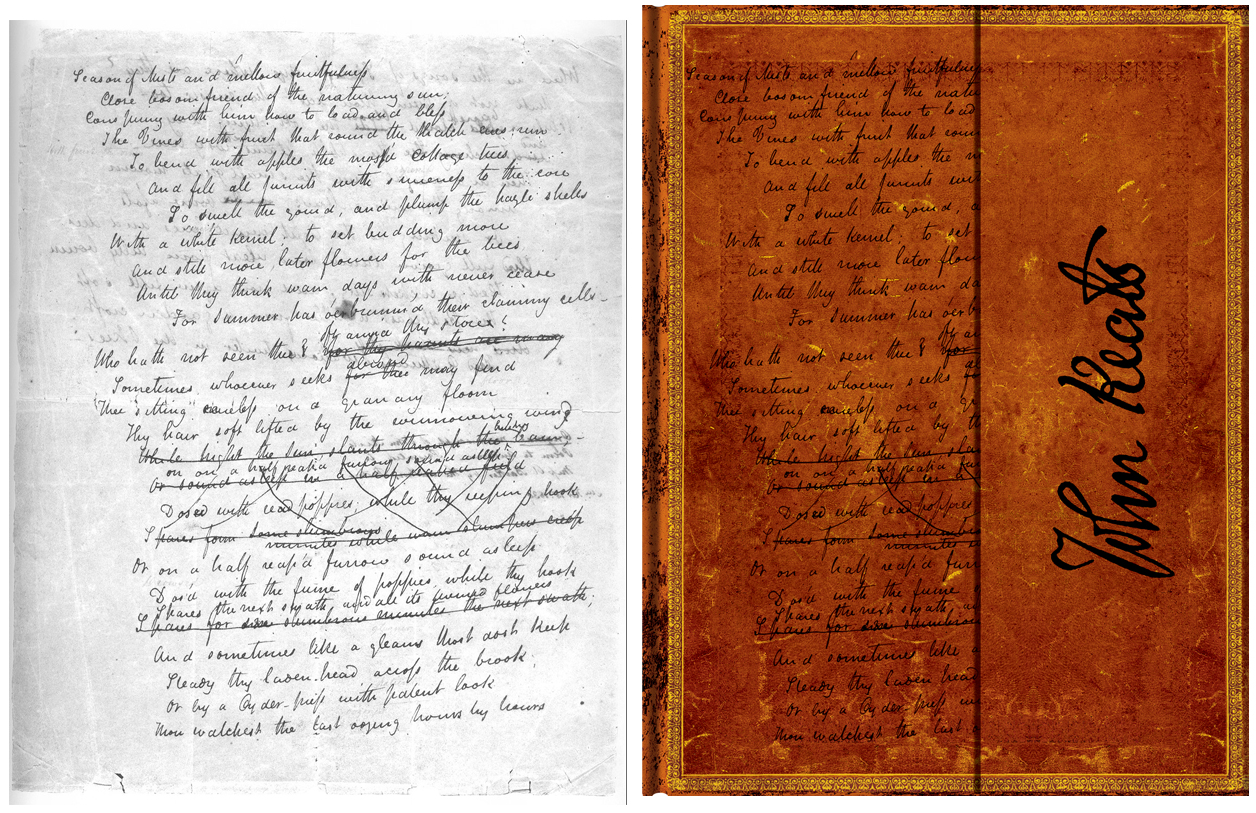 Season of Mists and mellow fruitfulness
Close bosom friend of the naturring sun
Conspiring with him how to load and bless
The Vines with fruit that round the thatch eves run
To bend with apples the moss'd cottage trees
And fill all furuits with sweeness to the core
To swell the gourd, and plump the hazle shells
With a white kernel; to set budding more
And still more later flowers for the bees
Until they think wam days with never cease
For Summer has o'erbrimm'd their clammy cells—
oft amid thy stores?
Who hath not seen thee? for thy haunts are many
abroad
Sometimes whoever seeks for thee may find
Thee sitting careless on a granary floor
Thy hair soft lifted by the winmowing wing
While bright the Sun slants through the barn;—
on on a half reap'd furrow sound asleep
Or sound asleep in a half reaped field
Dosed with read poppies; while thy reeping hook
Spares form some slumbrous
minutes while wam slumpers creep
Or on a half reap'd furrow sound asleep
Dos'd with the fume of poppies, while thy hook
Spares the next swath, and all its twined flowers
Spares for some slumbrous minutes the next swath;
And sometimes like a gleans thost dost keep
Steady thy laden head across the brook;
Or by a Cyder-press with patent look
Thou watchest the last oozing hours by hours
Season of Mists and mellow fruitfulness
Close bosom friend of the
Conspiring with him how to load
The Vines with fruit that
To bend with apples the
And fill all furuits
To swell the gourd,
With a white kernel; to set
And still more later
Until they think wam
For Summer has
Who hath not seen thee?
Sometimes whoever seeks
Thee sitting careless on a
Thy hair soft lifted by
While bright the Sun
on on a half reap'd
Or sound asleep in a
Dosed with read poppies
Spares form some
minutes
Or on a half reap'd
Dos'd with the fume
Spares the next swath,
Spares for some slumbrous
And sometimes like
Steady thy laden head
Or by a Cyder-press
Thou watchest the last
John Keats